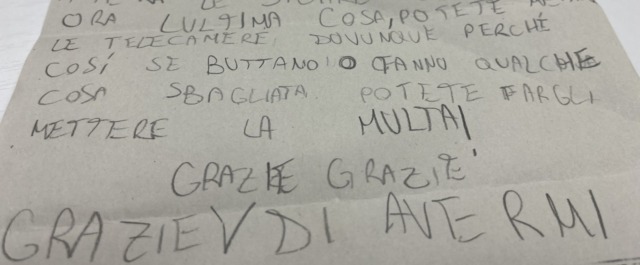 ORA LULTIMA COSA, POTETE
LE TELECAMERE, DOVUNQUE PERCHÉ
COSÍ SE BUTTANO O FANNO QUALCHE
COSA SBAGLIATA POTETE FARGLI
METTERE LA MULTA
GRAZIE GRAZIE
GRAZIE DI AVERMI